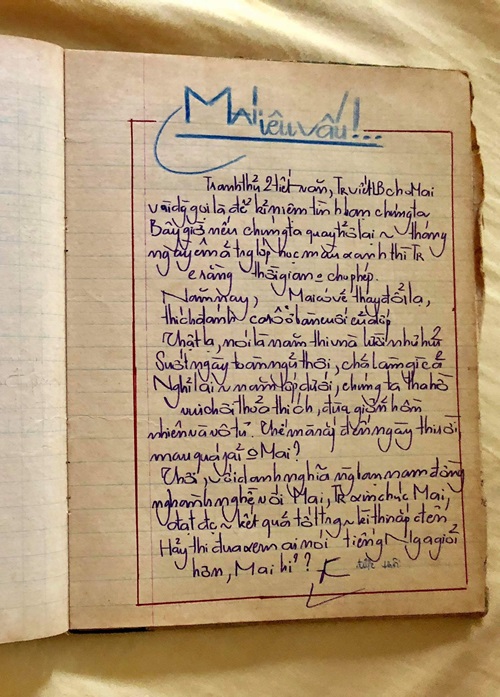 Mai iêu vấu!...
Tranh thủ 2 tiết văn, TR viết LB cho Mai
vài dg gọi là để kỉ niệm tìn bạn chúng ta
Bây giờ nếu chúng ta quay trở lại ~ tháng
ngày êm ả trg lớp học màu xanh thì TR
e rằng thời gian o cho phép.
Năm nay, Mai có vẻ thay đổi lạ,
thích đánh ca rô ở bàn cuối cùng
Thật lạ, nói là năm thi mà lười như hủi
Suốt ngày toàn ngủ thôi, chả làm gì cả
Nghĩ lại ~ năm lớp dưới, chúng ta tha hồ
vui chơi thỏa thích, đùa giỡn hồn
nhiên và vô tư. Thế mà nay đến ngày thi rồi
mau quá phải o Mai?
Thôi, với danh nghĩa ng bạn nam đồng
nghành nghề với Mai, TR xin chúc Mai
đạt đc ~ kết quả tốt trg ~ kì thi sắp đến
Hãy thi đua xem ai nói tiếng Nga giỏi
hơn, Mai hỉ?